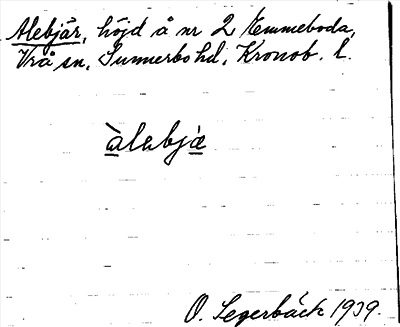 Alebjär, höjd å nr 2 Emmeboda,
Vrå sn, Sunnerbo hd, Kronob. l.
àlebjæ
O. Segerbäck 1939.